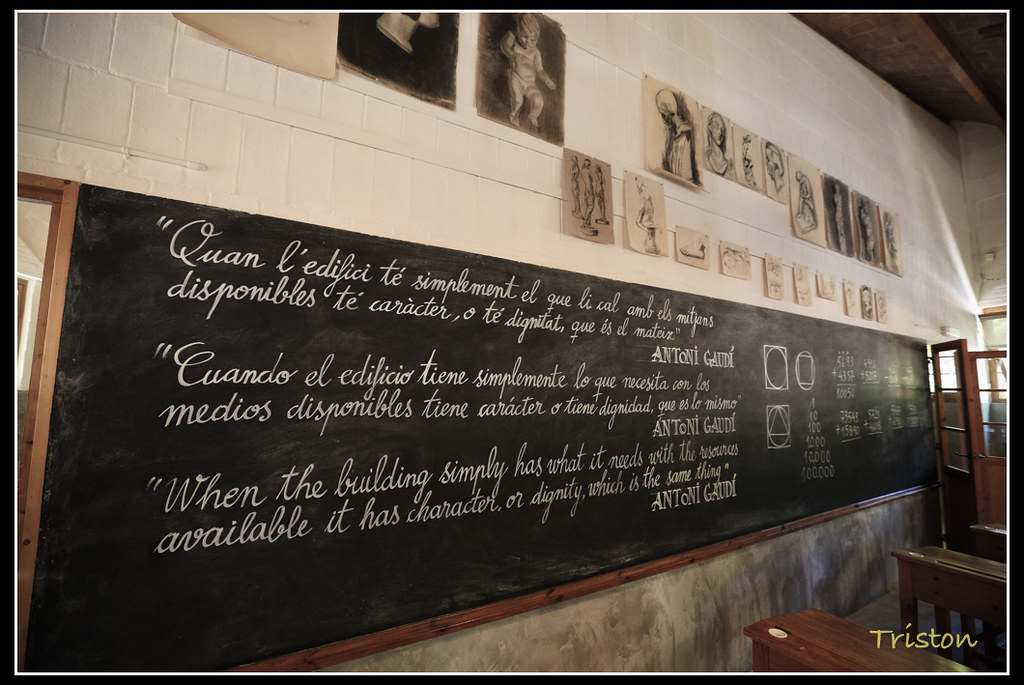 "Quan l'edifici té simplement el que li cal amb els mitjans
disponibles té caràcter, o té dignitat, que és el mateix"
ANTONI GAUDÍ
"Cuando el edificio tiene simplemente lo que necesita con los
medios disponibles tiene carácter o tiene dignidad, que es lo mismo"
ANTONI GAUDÍ
"When the building simply has what it needs with the resources
available it has character, or dignity, which is the same thing"
ANTONI GAUDÍ
1
10
100
1000
10.000
100.000
Triston